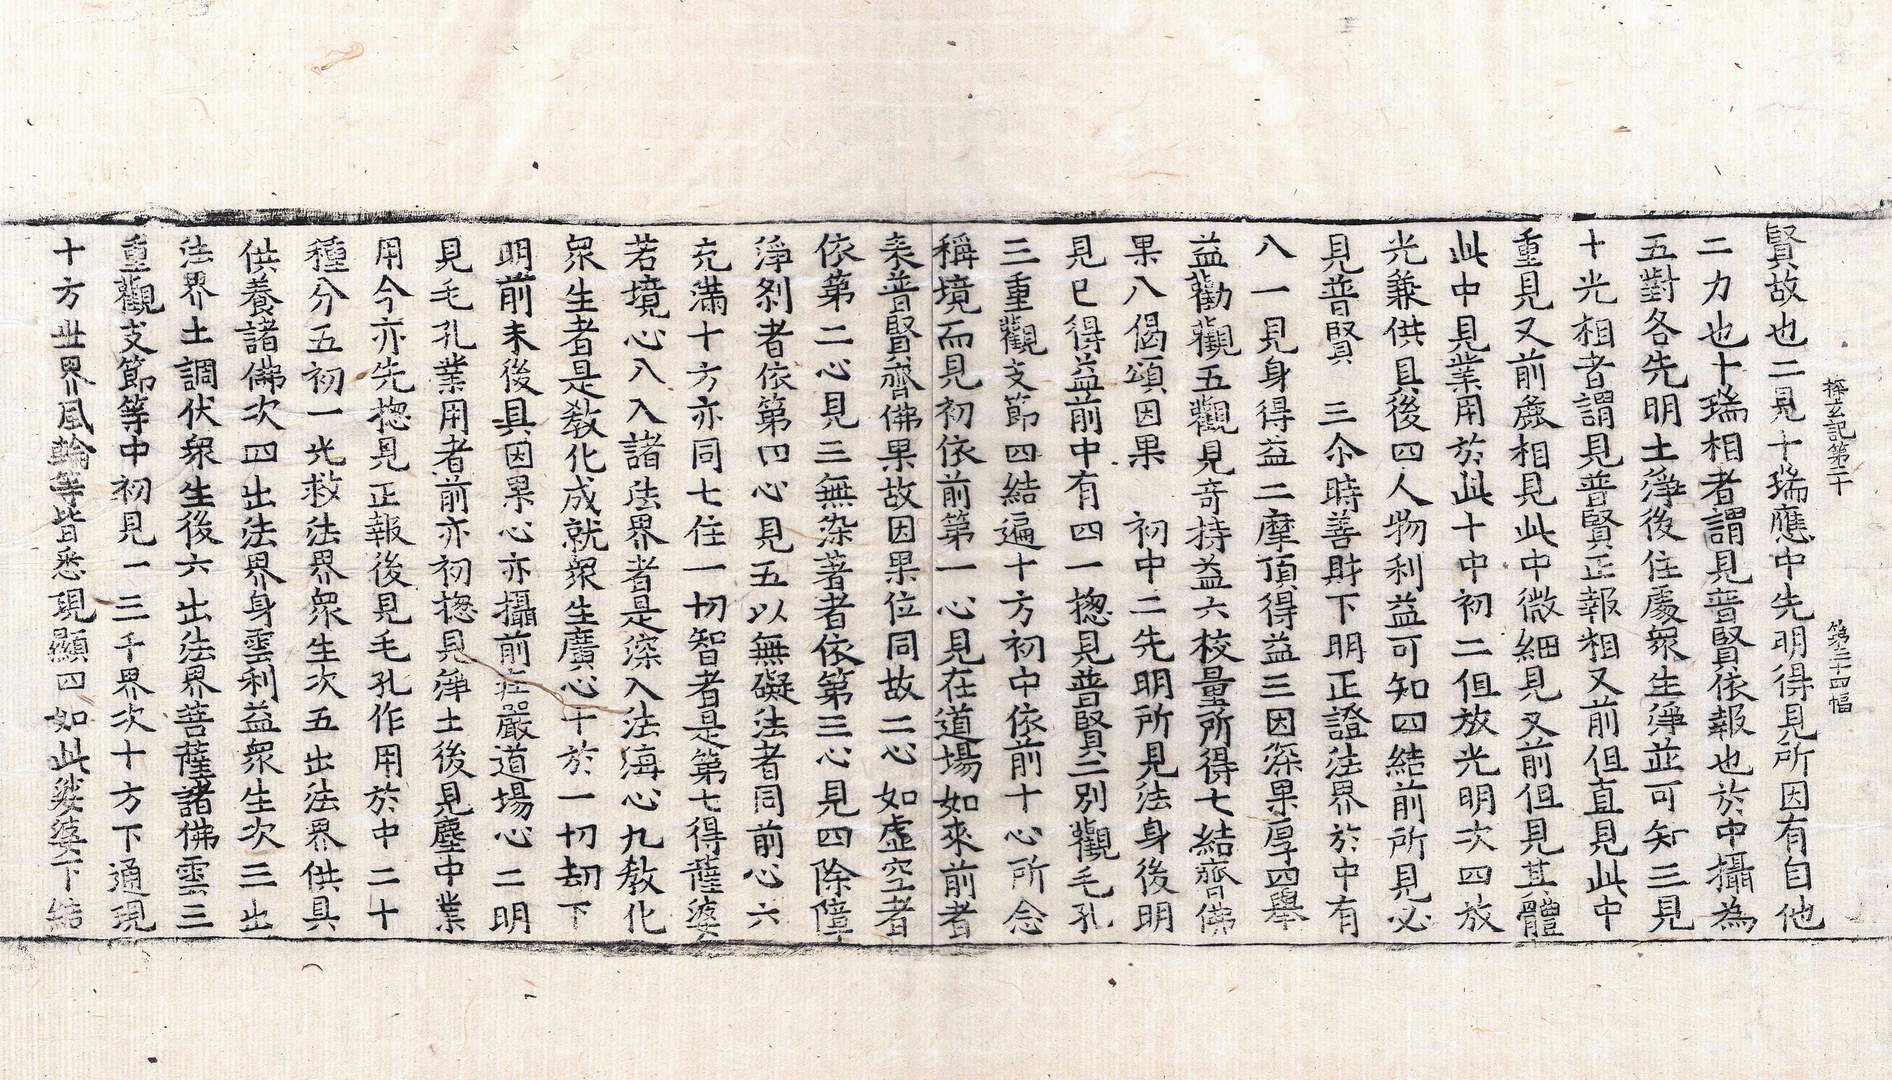 探玄記第二十　第三十四幅
賢故也二見十瑞應中先明得見所因有自他
二力也十瑞相者謂見普賢依報也於中攝為
五對各先明土淨後住處衆生淨並可知三見
十光相者謂見普賢正報相又前但直見此中
重見又前麁相見此中微細見又前但見其體
此中見業用於此十中初二但放光明次四放
光兼供具後四人物利益可知四結前所見必
見普賢　三尒時善財下明正證法界於中有
八一見身得益二摩頂得益三因深果厚四舉
益勸觀五觀見奇持益六校量所得七結齊佛
果八偈頌因果　初中二先明所見法身後明
見已得益前中有四一揔見普賢二別觀毛孔
三重觀支節四結遍十方初中依前十心所念
稱境而見初依前第一心見在道場如來前者
表普賢齊佛果故因果位同故二心如虛空者
依第二心見三無染著者依第三心見四除障
淨剎者依第四心見五以無礙法者同前心六
充滿十方亦同七住一切智者是第七得薩婆
若境心八入諸法界者是深入法海心九教化
衆生者是教化成就衆生廣心十於一切劫下
明前未後具因果心亦攝前莊嚴道場心二明
見毛孔業用者前亦初揔見淨土後見塵中業
用今亦先揔見正報後見毛孔作用於中二十
種分五初一光救法界衆生次五出法界供具
供養諸佛次四出法界身雲利益衆生次三出
法界土調伏衆生後六出法界菩薩諸佛雲三
重觀支節等中初見一三千界次十方下通現
十方世界風輪等皆悉現顯四如此娑婆下結